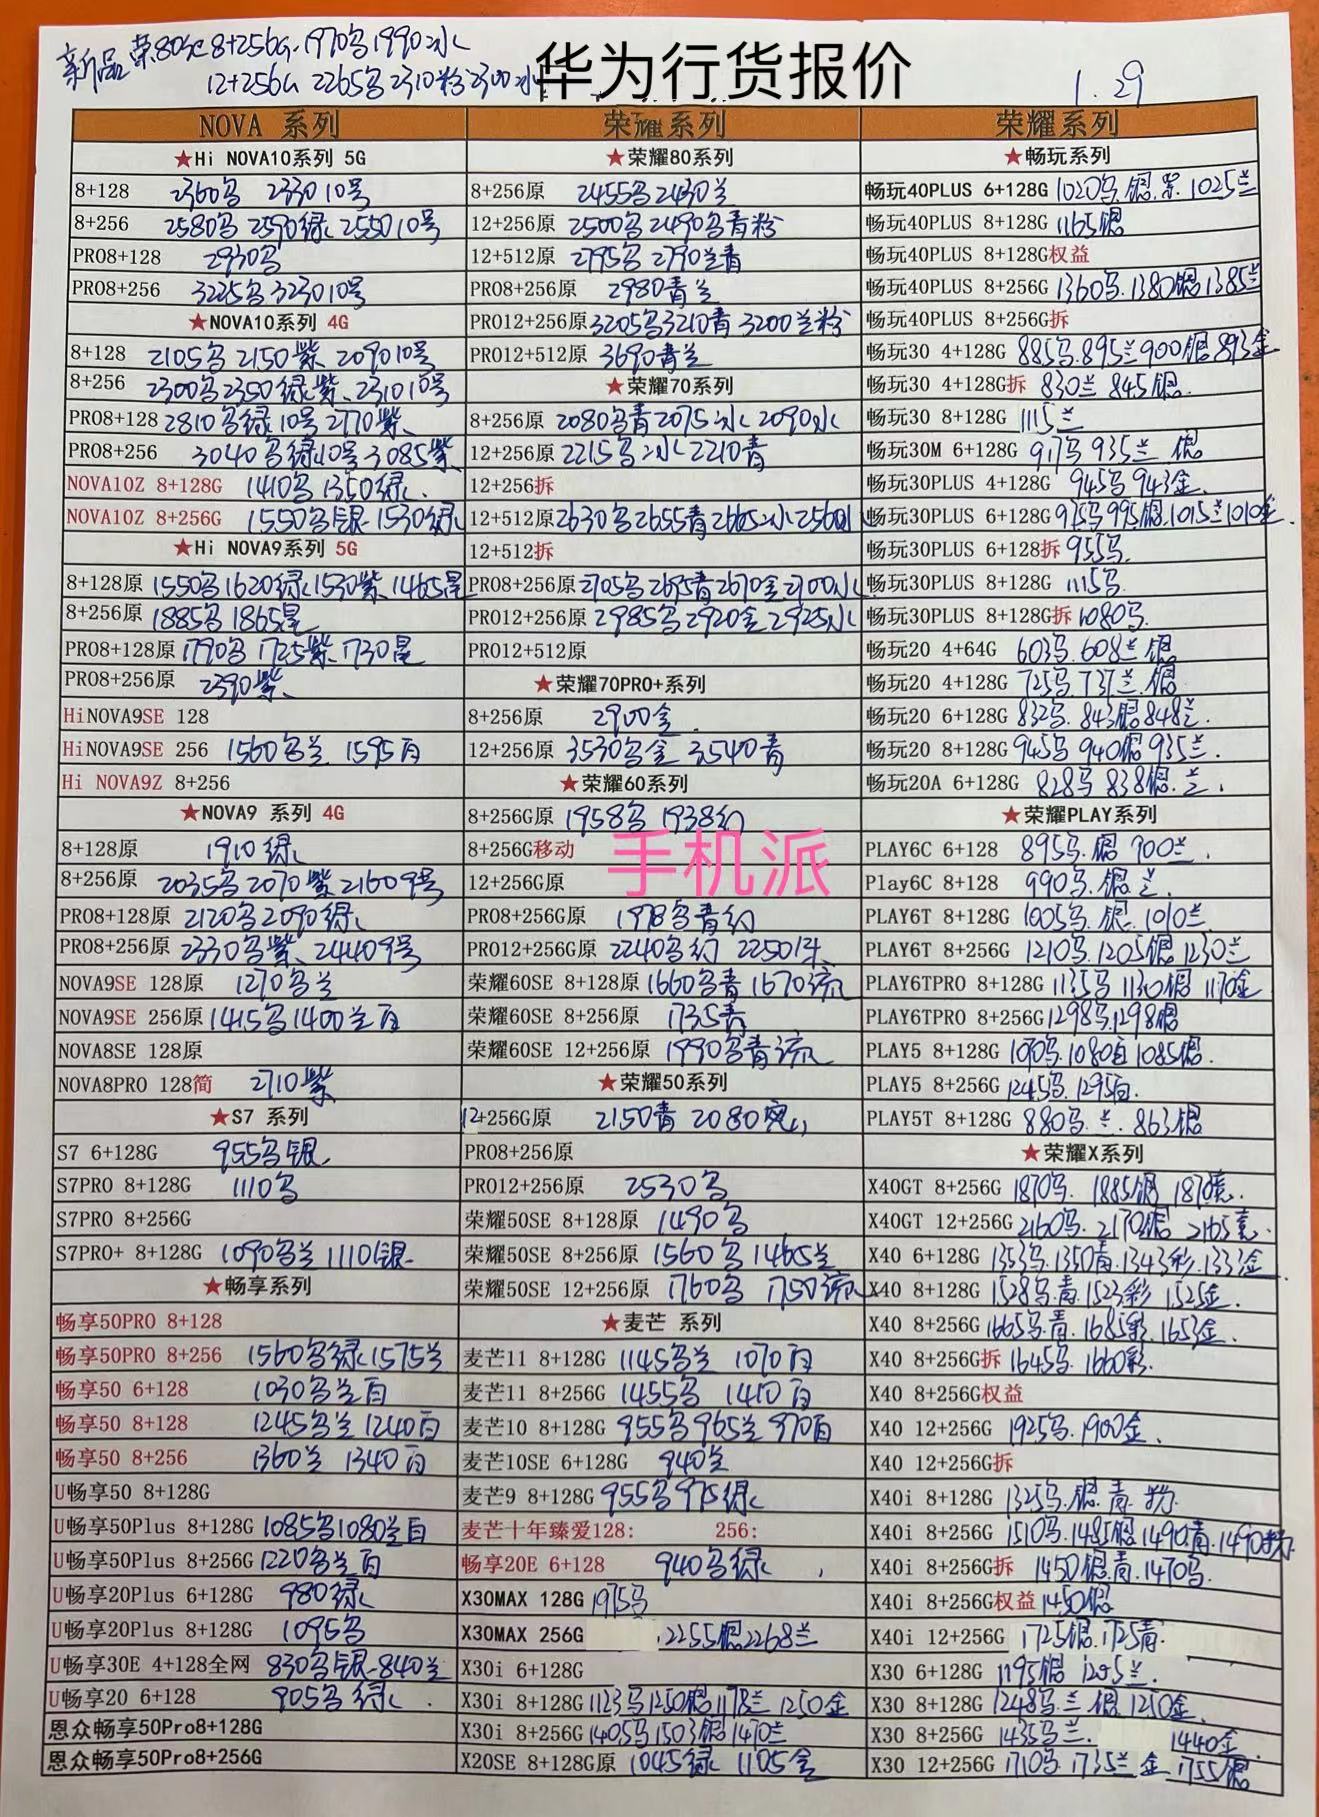 新品 荣80SE 8+256G 1970乌1990冰
12+256G 2265乌2310粉2300冰
华为行货报价
1.29
NOVA 系列
★Hi NOVA10系列 5G
8+128 2360乌 2330 10号
8+256 2580乌 2590绿 2550 10号
PRO8+128 2930乌
PRO8+256 3225乌 3230 10号
★NOVA10系列 4G
8+128 2105乌 2150紫 2090 10号
8+256 2300乌2350绿紫、2310 10号
PRO8+128 2810乌绿10号 2770紫
PRO8+256 3040乌绿10号 3085紫
NOVA10Z 8+128G 1410乌 1350绿
NOVA10Z 8+256G 1550乌银 1530绿
★Hi NOVA9系列 5G
8+128原 1550乌1620绿1530紫 1465星
8+256原 1885乌 1865星
PRO8+128原 1790乌 1725紫 1730星
PRO8+256原 2390紫
HiNOVA9SE 128
HiNOVA9SE 256 1560乌兰 1595白
Hi NOVA9Z 8+256
★NOVA9 系列 4G
8+128原 1910绿
8+256原 2035乌2070紫 2160 9号
PRO8+128原 2120乌2090绿
PRO8+256原 2330乌紫、2440 9号
NOVA9SE 128原 1270乌兰
NOVA9SE 256原 1415乌1400兰白
NOVA8SE 128原
NOVA8PRO 128简 2710紫
★S7 系列
S7 6+128G 955乌银
S7PRO 8+128G 1110乌
S7PRO 8+256G
S7PRO+ 8+128G 1090乌兰 1110银
★畅享系列
畅享50PRO 8+128
畅享50PRO 8+256 1560乌绿1575兰
畅享50 6+128 1030乌兰白
畅享50 8+128 1245乌兰 1240白
畅享50 8+256 1360兰 1340白
U畅享50 8+128G
U畅享50Plus 8+128G 1085乌1080兰白
U畅享50Plus 8+256G 1220乌兰白
U畅享20Plus 6+128G 980绿
U畅享20Plus 8+128G 1095乌
U畅享30E 4+128全网 830乌银 840兰
U畅享20 6+128 905乌绿
恩众畅享50Pro8+128G
恩众畅享50Pro8+256G
荣耀系列
★荣耀80系列
8+256原 2455乌2430兰
12+256原 2500乌 2490乌青粉
12+512原 2795乌 2790兰青
PRO8+256原 2980青兰
PRO12+256原 3205乌3210青 3200兰粉
PRO12+512原 3690青兰
★荣耀70系列
8+256原 2080乌青 2075冰 2090冰
12+256原 2215乌冰 2210青
12+256拆
12+512原 2630乌2655青2665冰2560
12+512拆
PRO8+256原 2705乌2695青2670金2700冰
PRO12+256原 2985乌2920金2925冰
PRO12+512原
★荣耀70PRO+系列
8+256原 2900金
12+256原 3530乌金 3540青
★荣耀60系列
8+256G原 1958乌 1938幻
8+256G移动
手机派
12+256G原
PRO8+256G原 1978乌青幻
PRO12+256G原 2240乌幻 2250
荣耀60SE 8+128原 1660乌青 1670流
荣耀60SE 8+256原 1735青
荣耀60SE 12+256原 1990乌青流
★荣耀50系列
12+256G原 2150青 2080
PRO8+256原
PRO12+256原 2530乌
荣耀50SE 8+128原 1490乌
荣耀50SE 8+256原 1560乌 1465兰
荣耀50SE 12+256原 1760乌 1750流
★麦芒 系列
麦芒11 8+128G 1145乌兰 1070白
麦芒11 8+256G 1455乌 1410白
麦芒10 8+128G 955乌965兰 970白
麦芒10SE 6+128G 940兰
麦芒9 8+128G 955乌975绿
麦芒十年臻爱128: 256:
畅享20E 6+128 940乌绿
X30MAX 128G 1975乌
X30MAX 256G 2255银2268兰
X30i 6+128G
X30i 8+128G 1123乌1250银1178兰 1250金
X30i 8+256G 1405乌1503银1470兰
X20SE 8+128G原 1045绿 1105金
荣耀系列
★畅玩系列
畅玩40PLUS 6+128G 1020乌.银.黑 1025兰
畅玩40PLUS 8+128G 1165银
畅玩40PLUS 8+128G权益
畅玩40PLUS 8+256G 1360乌.1380银1385兰
畅玩40PLUS 8+256G拆
畅玩30 4+128G 885乌.895兰900银893金
畅玩30 4+128G拆 830兰 845银
畅玩30 8+128G 1115兰
畅玩30M 6+128G 917乌 935兰 银
畅玩30PLUS 4+128G 945乌 943金
畅玩30PLUS 6+128G 975乌995银1015兰1010金
畅玩30PLUS 6+128拆 955乌
畅玩30PLUS 8+128G 1115乌
畅玩30PLUS 8+128G拆 1080乌
畅玩20 4+64G 603乌.608兰 银
畅玩20 4+128G 725乌 737兰.银
畅玩20 6+128G 832乌.843银848兰
畅玩20 8+128G 945乌 940银 935兰
畅玩20A 6+128G 828乌 838银.兰
★荣耀PLAY系列
PLAY6C 6+128 895乌.银 900兰
Play6C 8+128 990乌.银 兰
PLAY6T 8+128G 1005乌.银.1010兰
PLAY6T 8+256G 1210乌.1205银1230兰
PLAY6TPRO 8+128G 1135乌 1130银 1170金
PLAY6TPRO 8+256G 1298乌.1298银
PLAY5 8+128G 1070乌.1080白 1085银
PLAY5 8+256G 1245乌.1295白
PLAY5T 8+128G 880乌.兰.863银
★荣耀X系列
X40GT 8+256G 1870乌. 1885银 1870竞
X40GT 12+256G 2160乌. 2170银 2165竞
X40 6+128G 1353乌.1350青.1343彩.1333金
X40 8+128G 1528乌.青.1523彩 1525金
X40 8+256G 1665乌.青.1685彩.1653金
X40 8+256G拆 1645乌.1660彩
X40 8+256G权益
X40 12+256G 1925乌.1900金
X40 12+256G拆
X40i 8+128G 1325乌.银.青.粉
X40i 8+256G 1510乌.1485银1490青.1490粉
X40i 8+256G拆 1450银.青.1470乌
X40i 8+256G权益 1450银
X40i 12+256G 1725银.1725青
X30 6+128G 1195银 1205兰
X30 8+128G 1248乌.兰.银.1250金
X30 8+256G 1435乌兰. 1440金
X30 12+256G 1710乌.1735兰金 1755银